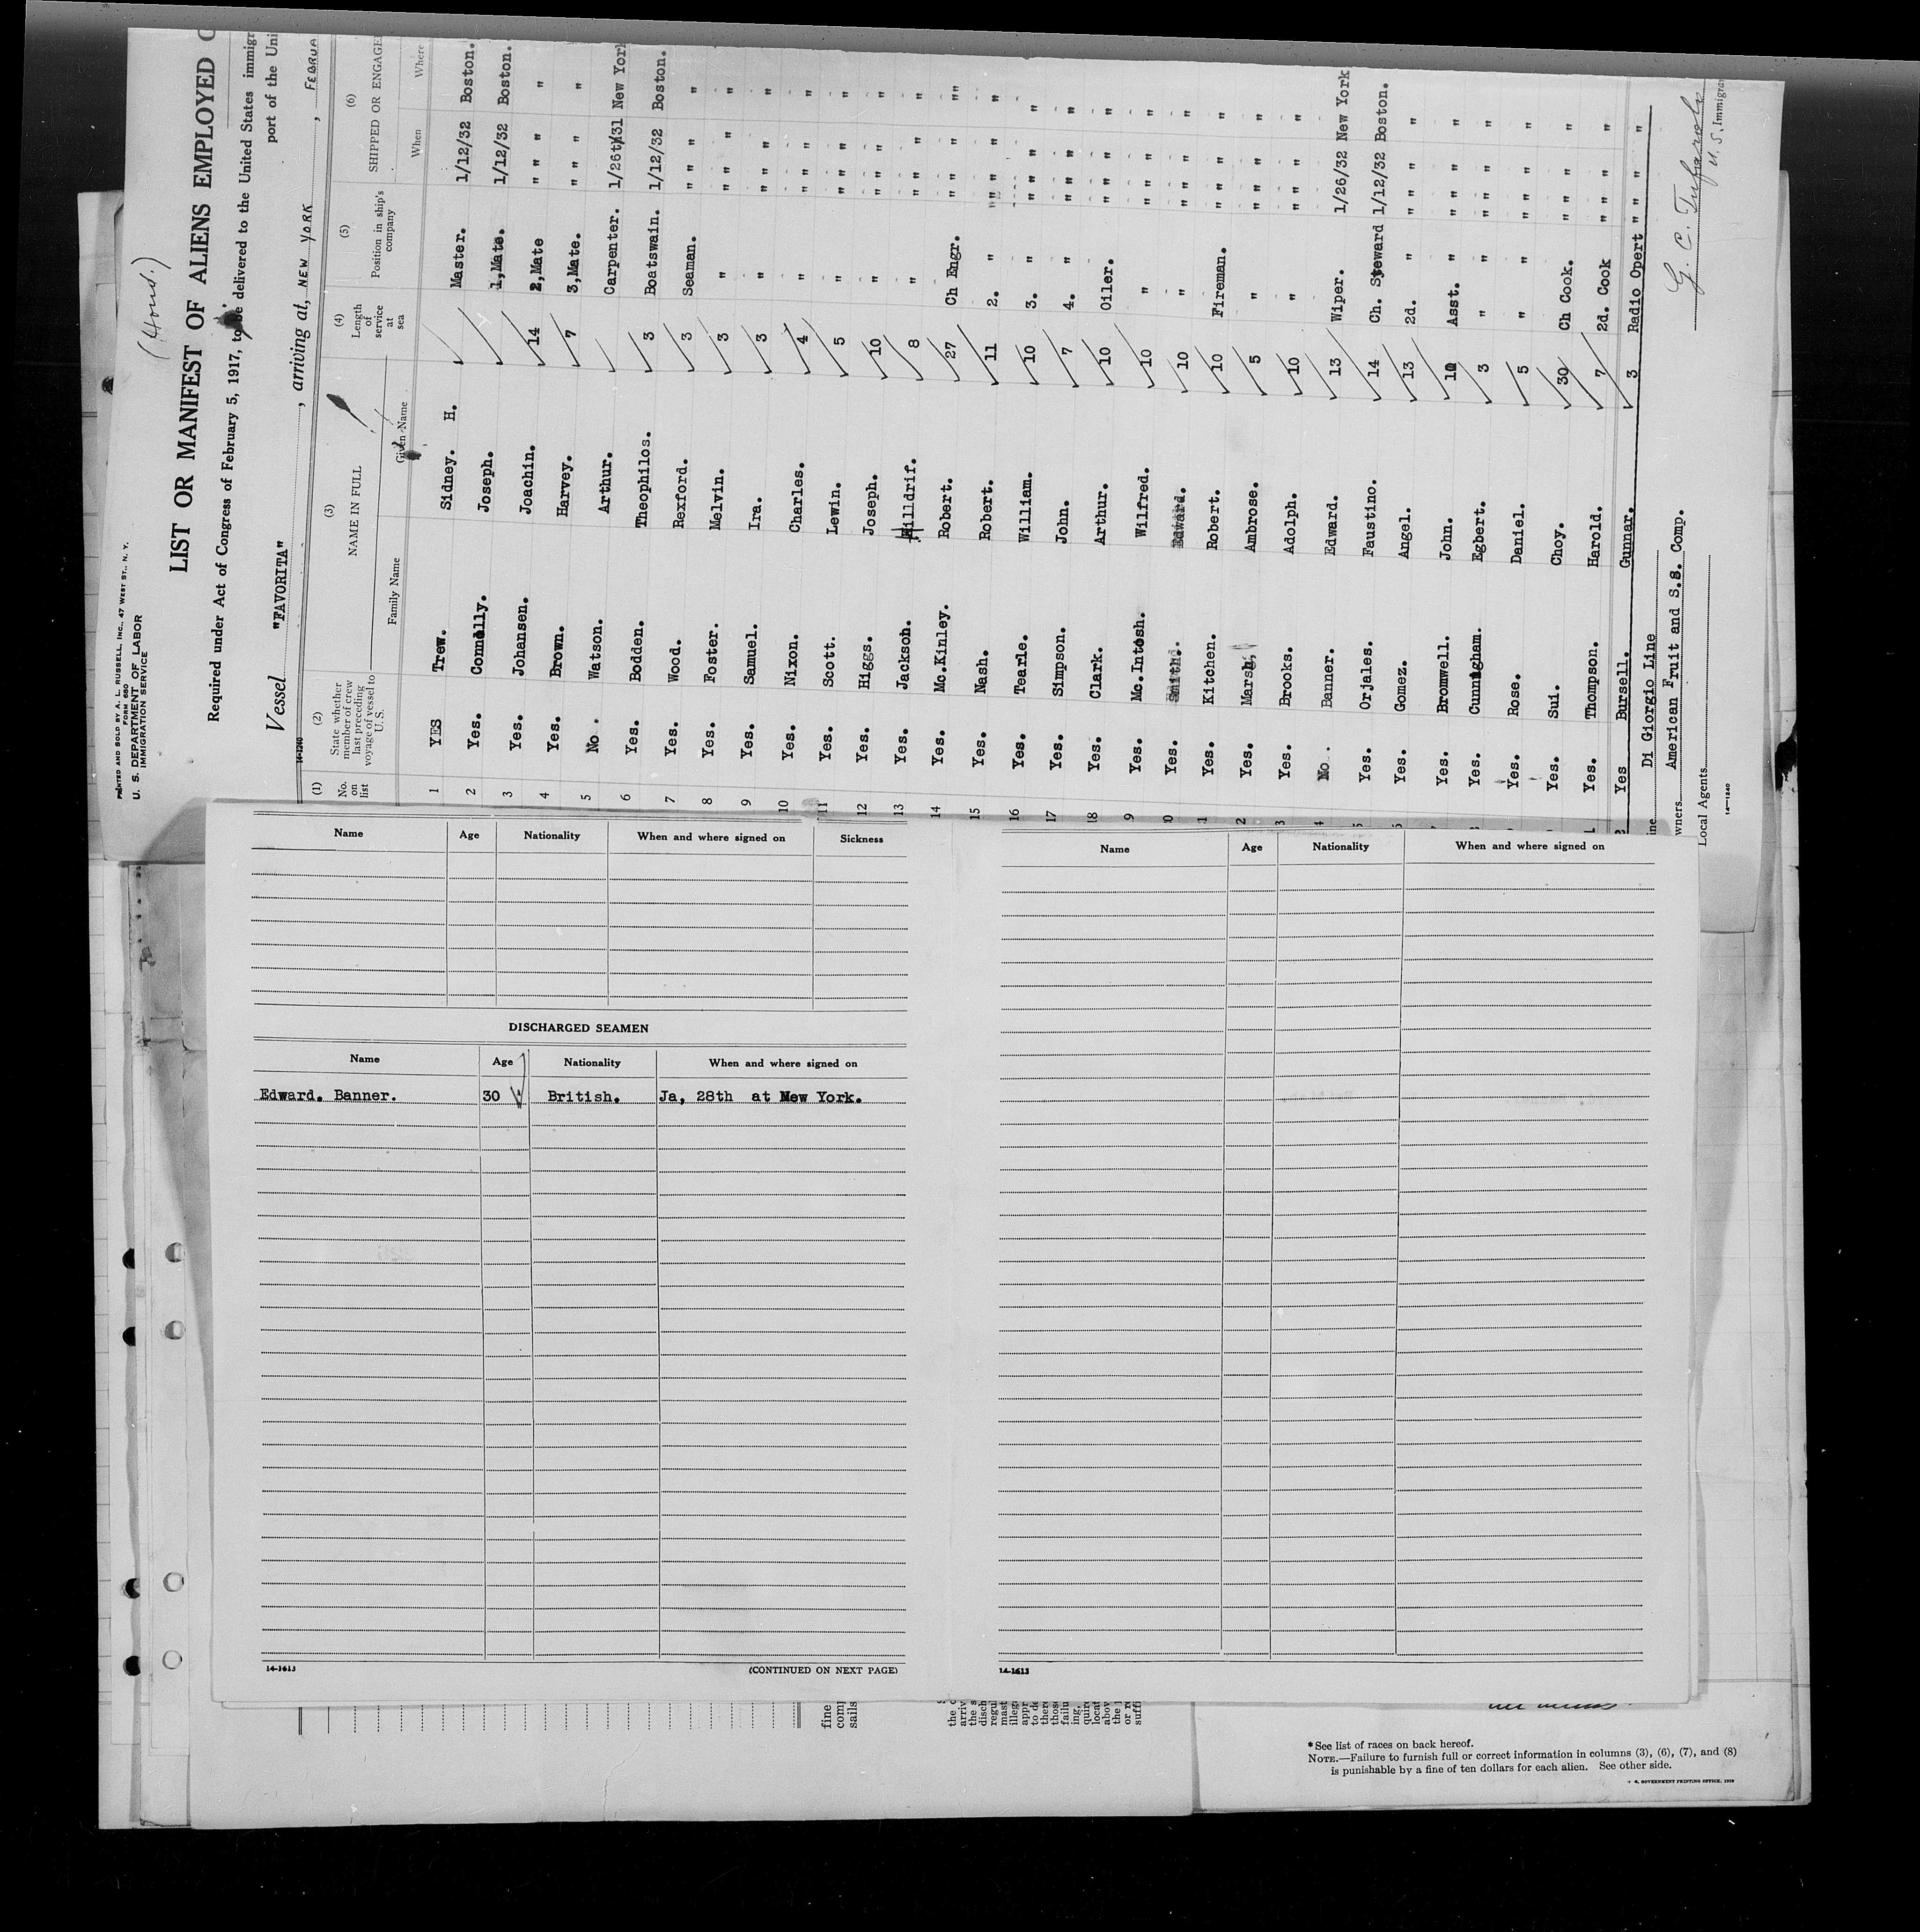 (Hond.)
PRINTED AND SOLD BY A. L. RUSSELL, INC., 47 WEST ST., N. Y.
FORM 680
U. S. DEPARTMENT OF LABOR
IMMIGRATION SERVICE
LIST OR MANIFEST OF ALIENS EMPLOYED
Required under Act of Congress of February 5, 1917, to be delivered to the United States immigr
port of the Uni
Vessel "FAVORITA" , arriving at, NEW YORK , FEBRUA
14-1240
(1) (2) (3) (4) (5) (6)
No. on list
State whether member of crew last preceding voyage of vessel to U. S.
NAME IN FULL
Family Name Given Name
Length of service at sea
Position in ship's company
SHIPPED OR ENGAGE
When Where
1 YES Trew. Sidney. H. Master. 1/12/32 Boston.
2 Yes. Connolly. Joseph. 1,Mate. 1/12/32 Boston.
3 Yes. Johansen. Joachin. 14 2,Mate " " " "
4 Yes. Brown. Harvey. 7 3,Mate. " " " "
5 No. Watson. Arthur. Carpenter. 1/26th/31 New York
6 Yes. Bodden. Theophilos. 3 Boatswain. 1/12/32 Boston.
7 Yes. Wood. Rexford. 3 Seaman. " " " "
8 Yes. Foster. Melvin. 3 " " " " "
9 Yes. Samuel. Ira. 3 " " " " "
10 Yes. Nixon. Charles. 4 " " " " "
11 Yes. Scott. Lewin. 5 " " " " "
12 Yes. Higgs. Joseph. 10 " " " " "
13 Yes. Jackson. Hilldrif. 8 " " " " "
14 Yes. Mc.Kinley. Robert. 27 Ch Engr. " " " ""
15 Yes. Nash. Robert. 11 2. " " " " "
16 Yes. Tearle. William. 10 3. " " " " "
17 Yes. Simpson. John. 7 4. " " " " "
18 Yes. Clark. Arthur. 10 Oiler. " " " "
9 Yes. Mc.Intosh. Wilfred. 10 " " " " "
0 Yes. Smith. Edward. 10 " " " " "
1 Yes. Kitchen. Robert. 10 Fireman. " " " "
2 Yes. Marsh, Ambrose. 5 " " " " "
3 Yes. Brooks. Adolph. 10 " " " " "
4 No. Banner. Edward. 13 Wiper. 1/26/32 New York
5 Yes. Orjales. Faustino. 14 Ch. Steward 1/12/32 Boston.
6 Yes. Gomez. Angel. 13 2d. " " " " "
Yes. Bromwell. John. 10 Asst. " " " " "
Yes. Cunningham. Egbert. 3 " " " " "
Yes. Rose. Daniel. 5 " " " " "
Yes. Sui. Choy. 30 Ch Cook. " " " "
Yes. Thompson. Harold. 7 2d. Cook " " " "
Yes Bursell. Gunnar. 3 Radio Opert " " " "
ine Di Giorgio Line
wners American Fruit and S.S. Comp.
Local Agents
U. S. Immigra
14-1240
Name Age Nationality When and where signed on Sickness
DISCHARGED SEAMEN
Name Age Nationality When and where signed on
Edward. Banner. 30 British. Ja, 28th at New York.
14-1613 (CONTINUED ON NEXT PAGE)
Name Age Nationality When and where signed on
14-1613
fine
com
sails
the c
arriv
the s
disch
regul
mast
illeg
appr
to de
there
those
failu
ing,
quire
locat
abov
the
or re
suffi
* See list of races on back hereof.
NOTE.—Failure to furnish full or correct information in columns (3), (6), (7), and (8)
is punishable by a fine of ten dollars for each alien. See other side.
GOVERNMENT PRINTING OFFICE, 1929